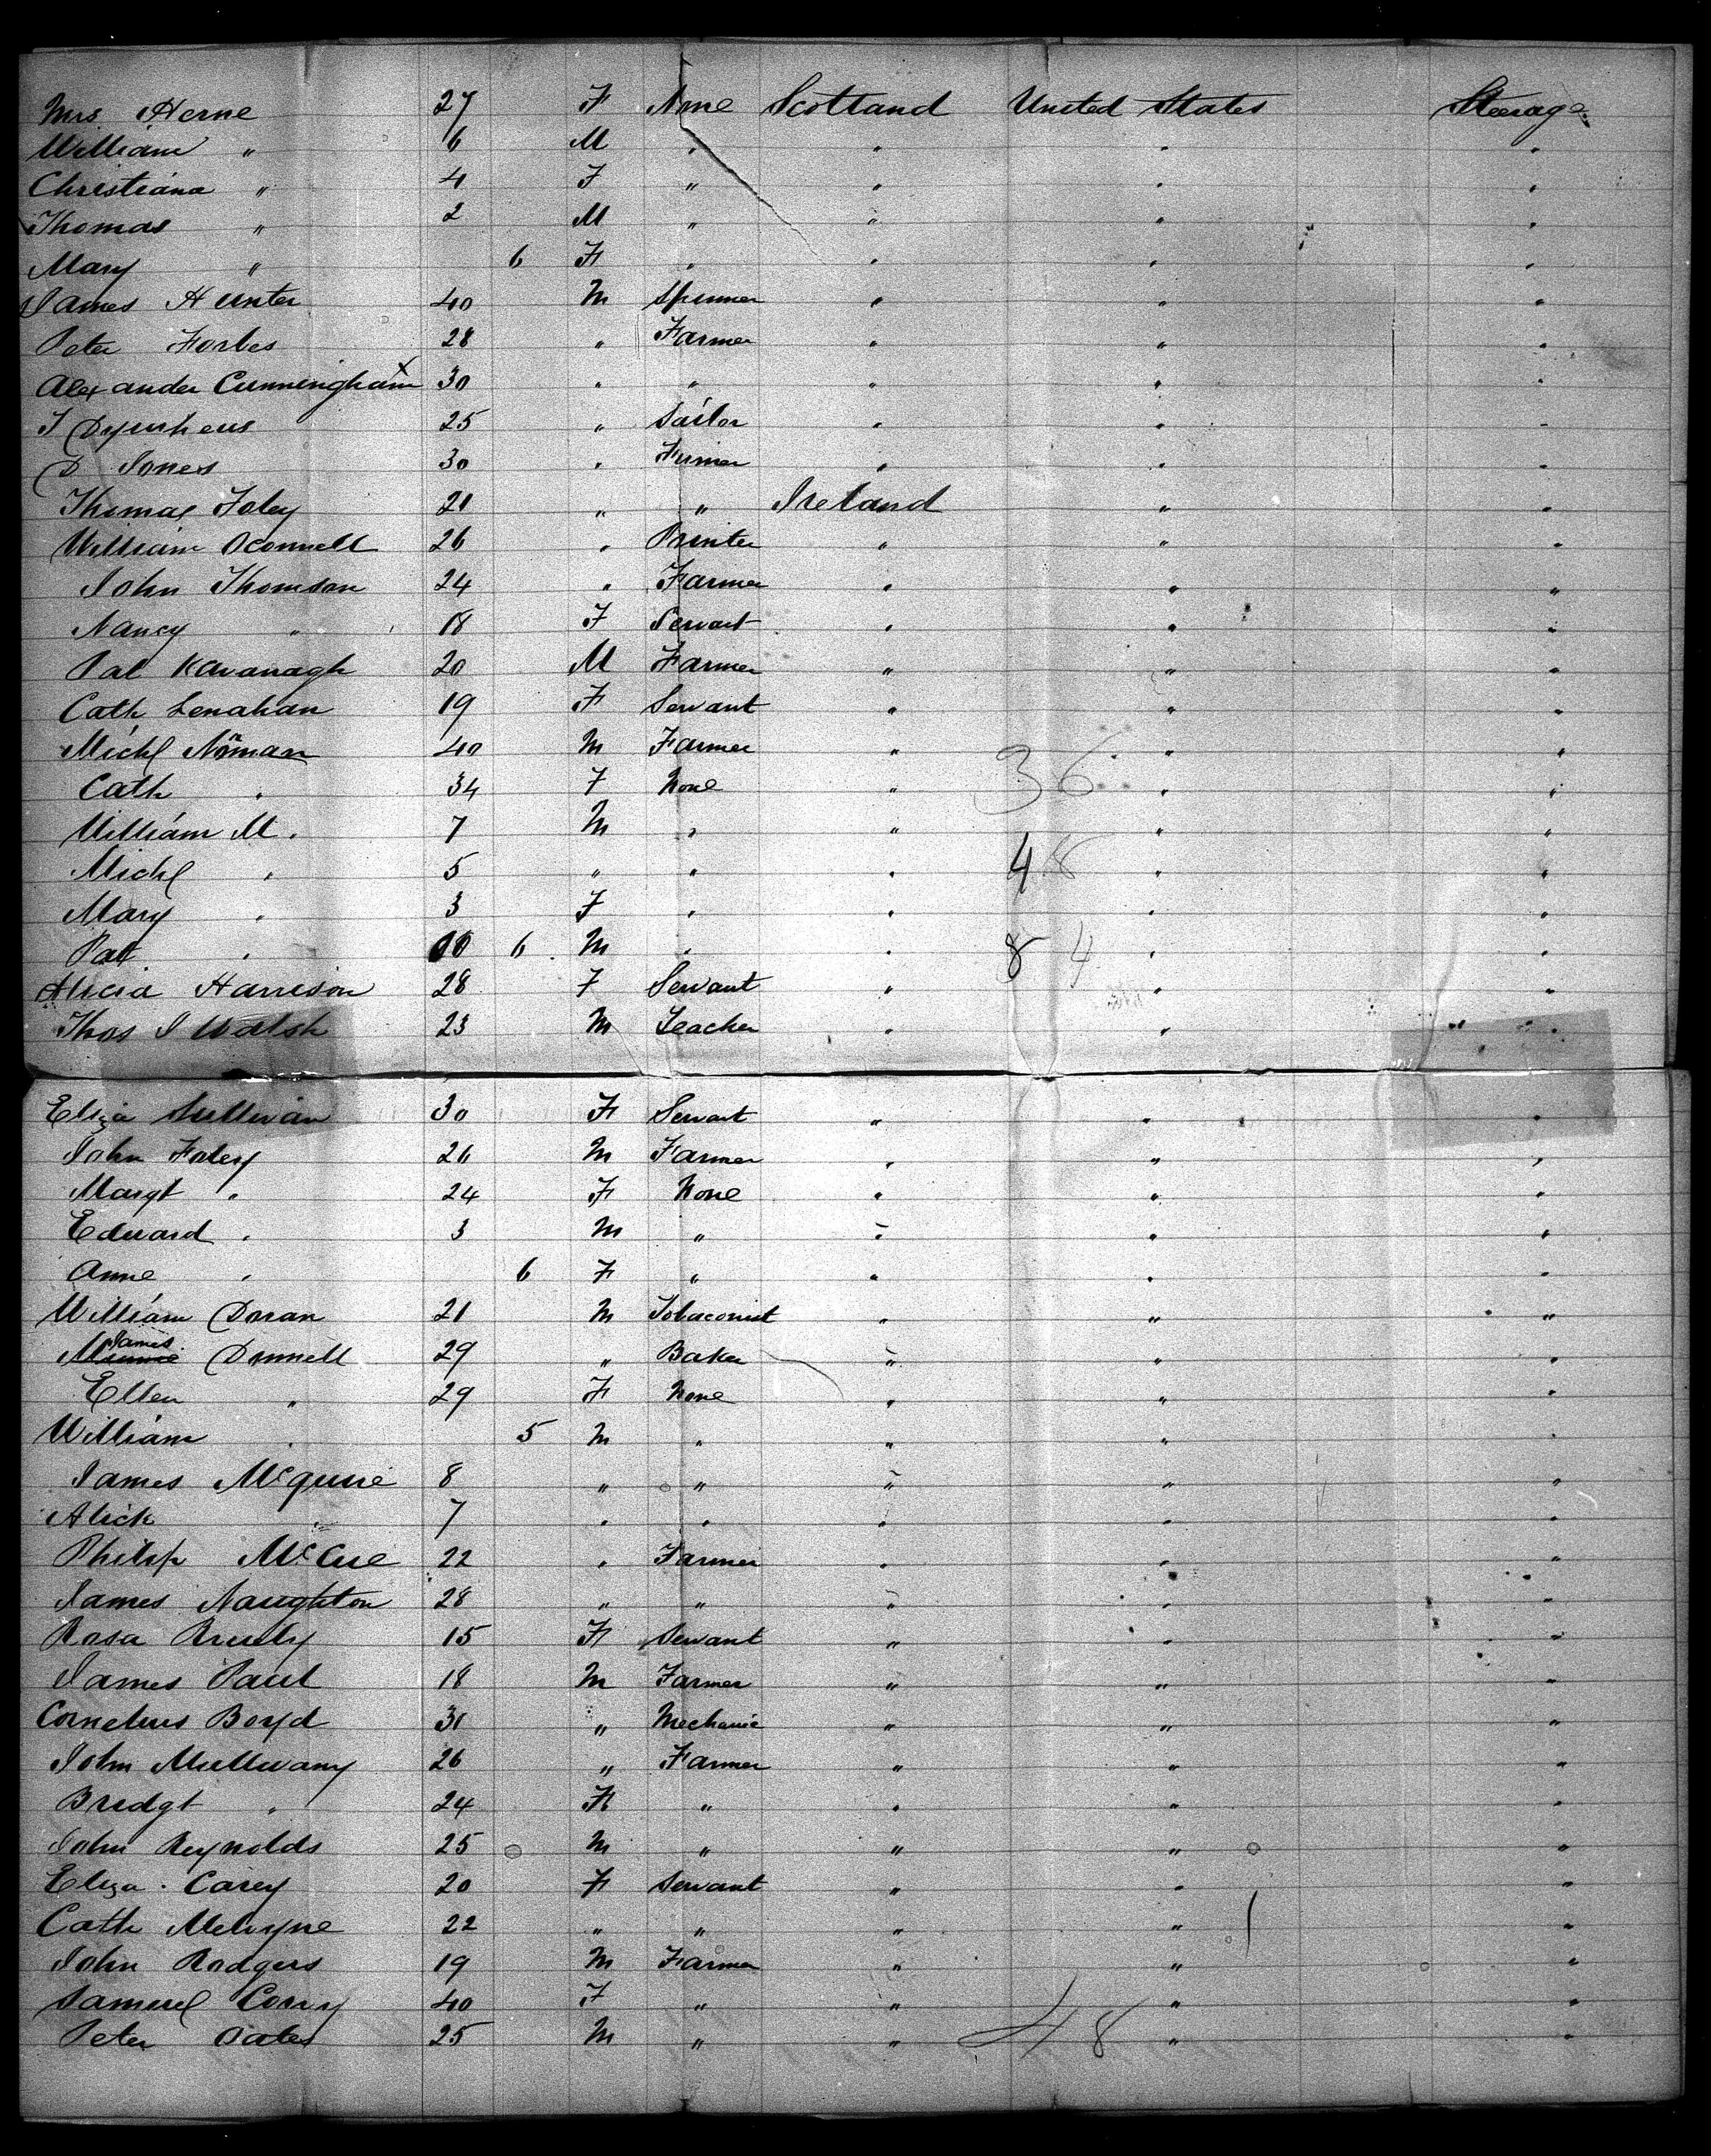 Mrs Herne 27 F None Scotland United States Steerage
William " 6 M " " " "
Christiana " 4 F " " " "
Thomas " 2 M " " " "
Mary " 6 F " " " "
James Hunter 40 M Spinner " " "
Peter Forbes 28 " Farmer " " "
Alexander Cunningham x 30 " " " " "
25 " Sailor " " "
D Jones 30 " " " "
Thomas Foley 21 " " Ireland " "
William Oconnell 26 " Printer " " "
John Thomson 24 " Farmer " " "
Nancy " 18 F Servant " " "
Pat Kavanagh 20 M Farmer " " "
Cath Lenahan 19 F Servant " " "
Michl Nonnan 40 M Farmer " " "
Cath " 34 F None " 36 " "
William M " 7 M " " " "
Michl " 5 " " " 48 " "
Mary " 3 F " " " "
Pat " 6 M " " 84 " "
Alicia Harrison 28 F Servant " " "
Thos J Walsh 23 M Teacher " " "
Eliza Sullivan 30 F Servant " " "
John Foley 26 M Farmer " " "
Margt " 24 F None " " "
Edward " 3 M " " " "
Anne " 6 F " " " "
William Doran 21 M Tobaconist " " "
James Dunnell 29 " Baker " " "
Ellen " 29 F None " " "
William " 5 M " " " "
James McGuire 8 " " " " "
Alick " 7 " " " " "
Philip McCue 22 " Farmer " " "
James Naughton 28 " " " " "
Rosa 15 F Servant " " "
James Paul 18 M Farmer " " "
Cornelius Boyd 31 " Mechanic " " "
John Mullvany 26 " Farmer " " "
Bridgt " 24 F " " " "
John Reynolds 25 M " " " "
Eliza Carey 20 F Servant " " "
Cath 22 " " " " "
John Rodgers 19 M Farmer " " "
Samuel Corry 40 F " " " "
Peter Oates 25 M " " 48 " "